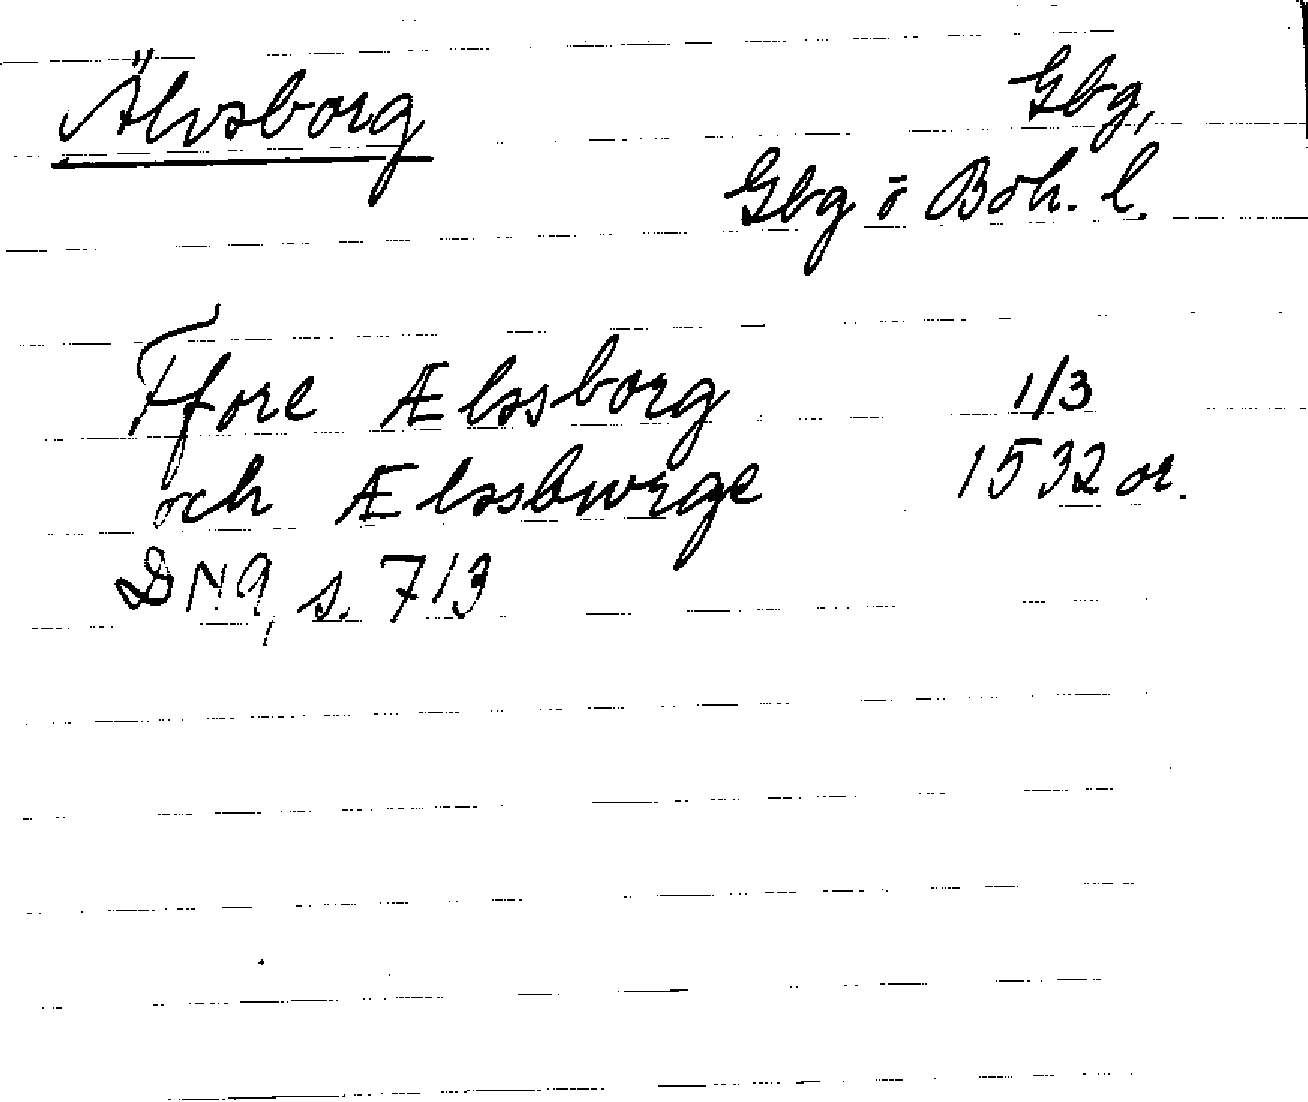 Älvsborg Gbg,
Gbg o Boh. l.
Ffore Ælssborg 1/3
och Ælssburge 1532 or.
DN 9, s. 713